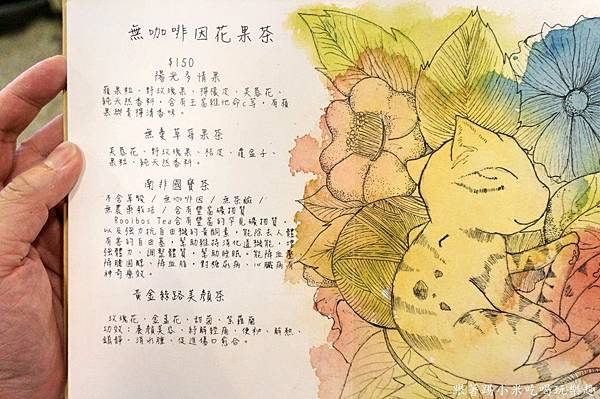 無咖啡因花果茶
$150
陽光多情果
蘋果粒、野玫瑰果、檸檬皮、芙蓉花、
純天然香料。含有豐富維他命C等,有蘋
果與青檸清香味。
無憂草莓果茶
芙蓉花、野玫瑰果、桔皮、蔓盆子、
果粒、純天然香料。
南非國寶茶
不含草酸 / 無咖啡因 / 無茶鹼 /
無農藥栽培 / 含有豐富礦物質
Rooibos Tea含有豐富的罕見礦物質,
以及強力抗自由機的黃酮素,能除去人體
有害的自由基,幫助維持消化道機能,增
強體力、調整體質、幫助睡眠。能降血壓
降膽固醇、降血脂,對糖尿病、心臟病有
神奇療效。
黃金絲路美顏茶
玫瑰花、金盞花、甜菊、紫羅蘭
功效:養顏美容、紓解經痛、便秘、解熱、
鎮靜、消水腫、促進傷口癒合。
跟著踢小米吃喝玩樂趣